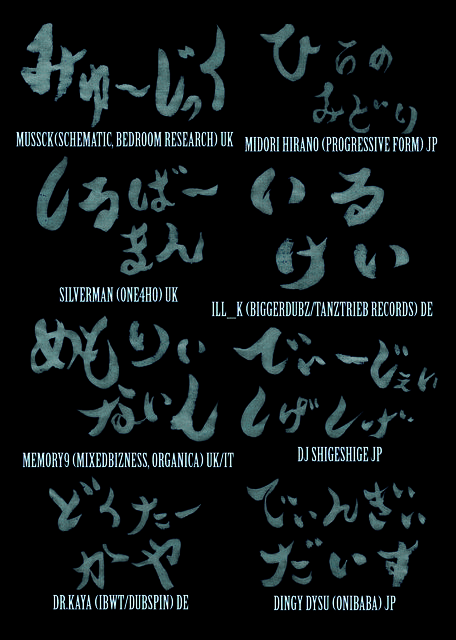 みゅ〜じっく
MUSSCK(SCHEMATIC, BEDROOM RESEARCH) UK
ひらの
みどり
MIDORI HIRANO (PROGRESSIVE FORM) JP
しるばー
まん
SILVERMAN (ONE4HO) UK
いる
けい
ILL_K (BIGGERDUBZ/TANZTRIEB RECORDS) DE
めもりぃ
ないん
MEMORY9 (MIXEDBIZNESS, ORGANICA) UK/IT
でぃーじぇい
しげしげ
DJ SHIGESHIGE JP
どくたー
かや
DR.KAYA (IBWT/DUBSPIN) DE
でぃんぎぃ
だいす
DINGY DYSU (ONIBABA) JP